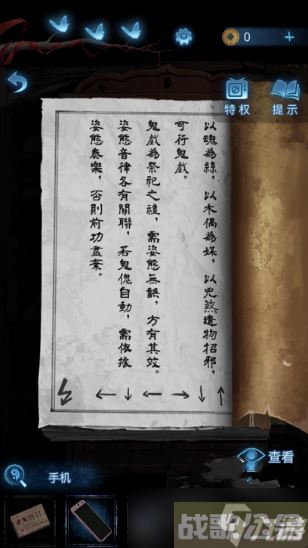 0
+
特权
提示
以魂為線，以木偶為媒，以兇煞遺物招邪，
可行鬼戲。
鬼戲為祭祀之禮，需姿態無誤，方有其效。
姿態音律各有關聯，若鬼傀自動，需依據
姿態奏樂，否則前功盡棄。
← ← ← → → ↑
查看
手机
战歌